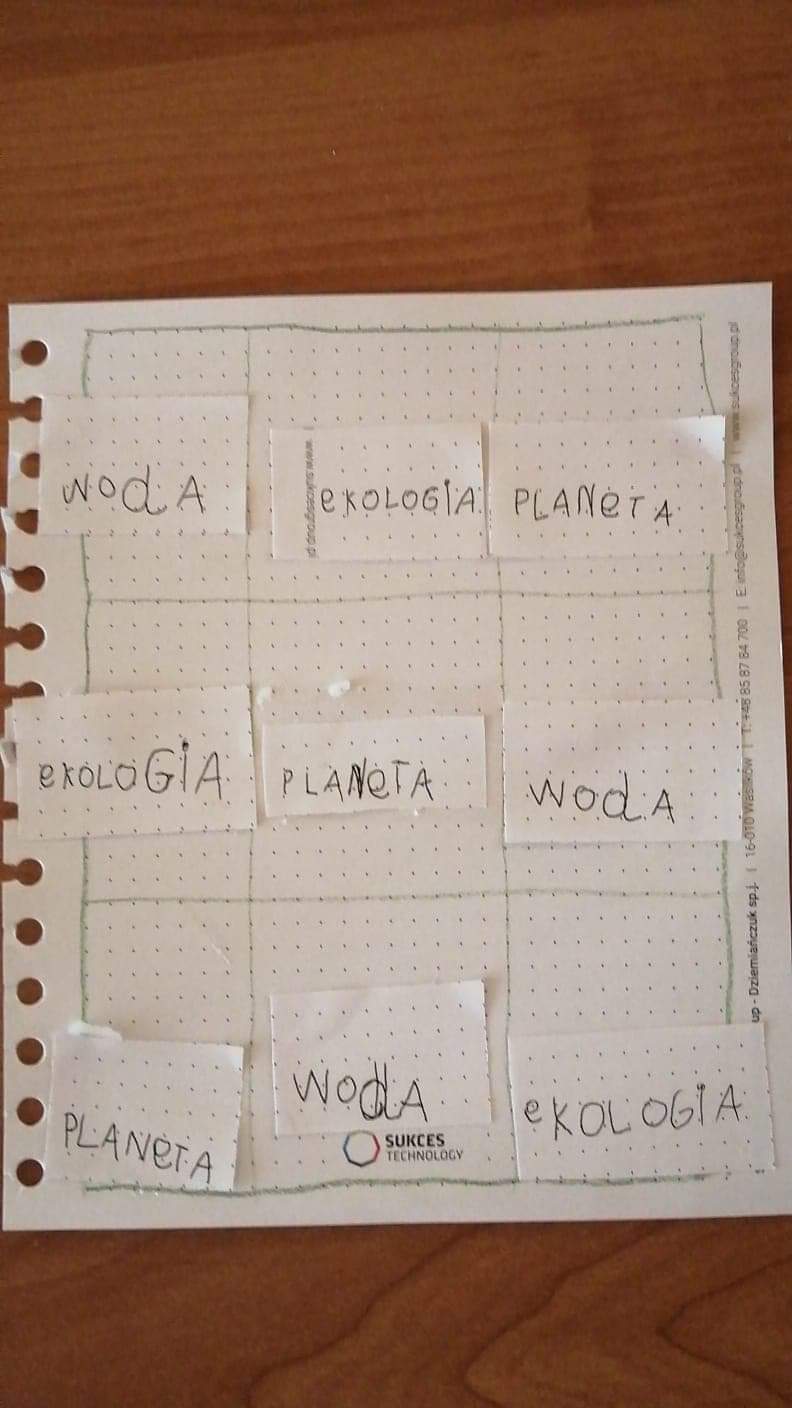 WODA EKOLOGIA PLANETA
EKOLOGIA PLANETA WODA
PLANETA WODA EKOLOGIA
SUKCES
TECHNOLOGY
up - Dziemiańczuk sp.j. | 16-010 Wasilków | T: +48 85 87 84 700 | E: info@sukcesgroup.pl | www.sukcesgroup.pl
| www.sukcesgroup.pl